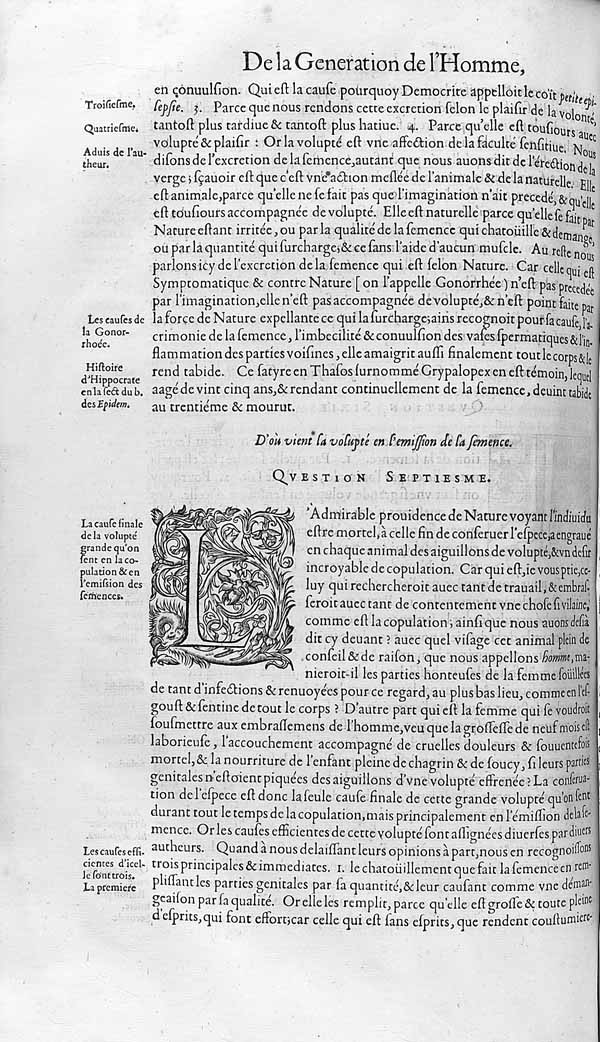 De la Generation de l'Homme,
en cōnuulſion. Qui eſt la cauſe pourquoy Democrite appelloit le coït petite epi-
Troiſieſme.
ſepſie. 3. Parce que nous rendons cette excretion ſelon le plaiſir de la volonté,
Quatrieſme.
tantoſt plus tardiue & tantoſt plus hatiue. 4. Parce qu'elle eſt touſiours auec
Aduis de l'au-
theur.
volupté & plaiſir : Or la volupté eſt vne affection de la faculté ſenſitiue. Nous
diſons de l'excretion de la ſemence, autant que nous auons dit de l'érection de la
verge ; ſçauoir eſt que c'eſt vne action meſlée de l'animale & de la naturelle. Elle
eſt animale, parce qu'elle ne ſe fait pas que l'imagination n'ait precedé, & qu'elle
eſt touſiours accompagnée de volupté. Elle eſt naturelle parce qu'elle ſe fait par
Nature eſtant irritée, ou par la qualité de la ſemence qui chatoüille & demange,
ou par la quantité qui ſurcharge, & ce ſans l'aide d'aucun muſcle. Au reſte nous
parlons icy de l'excretion de la ſemence qui eſt ſelon Nature. Car celle qui eſt
Symptomatique & contre Nature [ on l'appelle Gonorrhée ) n'eſt pas precedée
par l'imagination, elle n'eſt pas accompagnée de volupté, & n'eſt point faite par
Les cauſes de
la Gonor-
rhoée.
la force de Nature expellante ce qui la ſurcharge; ains recognoit pour ſa cauſe, l'a-
crimonie de la ſemence, l'imbecilité & conuulſion des vaſes ſpermatiques & l'in-
flammation des parties voiſines, elle amaigrit auſſi finalement tout le corps & le
Hiſtoire
d'Hippocrate
en la ſect du b.
des Epidem.
rend tabide. Ce ſatyre en Thaſos ſurnommé Grypalopex en eſt témoin, lequel
aagé de vint cinq ans, & rendant continuellement de la ſemence, deuint tabide
au trentiéme & mourut.
D'où vient la volupté en l'emiſſion de la ſemence.
QVESTION SEPTIESME.
La cauſe finale
de la volupté
grande qu'on
ſent en la co-
pulation & en
l'emiſſion des
ſemences.
L'Admirable prouidence de Nature voyant l'indiuidu
eſtre mortel, à celle fin de conſeruer l'eſpece, a engraué
en chaque animal des aiguillons de volupté, & vn deſir
incroyable de copulation. Car qui eſt, ie vous prie, ce-
luy qui rechercheroit auec tant de trauail, & embraſ-
ſeroit auec tant de contentement vne choſe ſi vilaine,
comme eſt la copulation ; ainſi que nous auons deſia
dit cy deuant ? auec quel viſage cet animal plein de
conſeil & de raiſon, que nous appellons homme, ma-
nieroit-il les parties honteuſes de la femme ſoüillées
de tant d'infections & renuoyées pour ce regard, au plus bas lieu, comme en l'eſ-
gouſt & ſentine de tout le corps ? D'autre part qui eſt la femme qui ſe voudroit
ſouſmettre aux embraſſemens de l'homme, veu que la groſſeſſe de neuf mois eſt
laborieuſe, l'accouchement accompagné de cruelles douleurs & ſouuentefois
mortel, & la nourriture de l'enfant pleine de chagrin & de ſoucy, ſi leurs parties
genitales n'eſtoient piquées des aiguillons d'vne volupté effrenée ? La conſerua-
tion de l'eſpece eſt donc la ſeule cauſe finale de cette grande volupté qu'on ſent
durant tout le temps de la copulation, mais principalement en l'émiſſion de la ſe-
mence. Or les cauſes efficientes de cette volupté ſont aſſignées diuerſes par diuers
Les cauſes effi-
cientes d'icel-
le ſont trois.
La premiere
autheurs. Quand à nous delaiſſant leurs opinions à part, nous en recognoiſſons
trois principales & immediates. 1. le chatoüillement que fait la ſemence en rem-
pliſſant les parties genitales par ſa quantité, & leur cauſant comme vne déman-
geaiſon par ſa qualité. Or elle les remplit, parce qu'elle eſt groſſe & toute pleine
d'eſprits, qui font effort; car celle qui eſt ſans eſprits, que rendent couſtumiere-